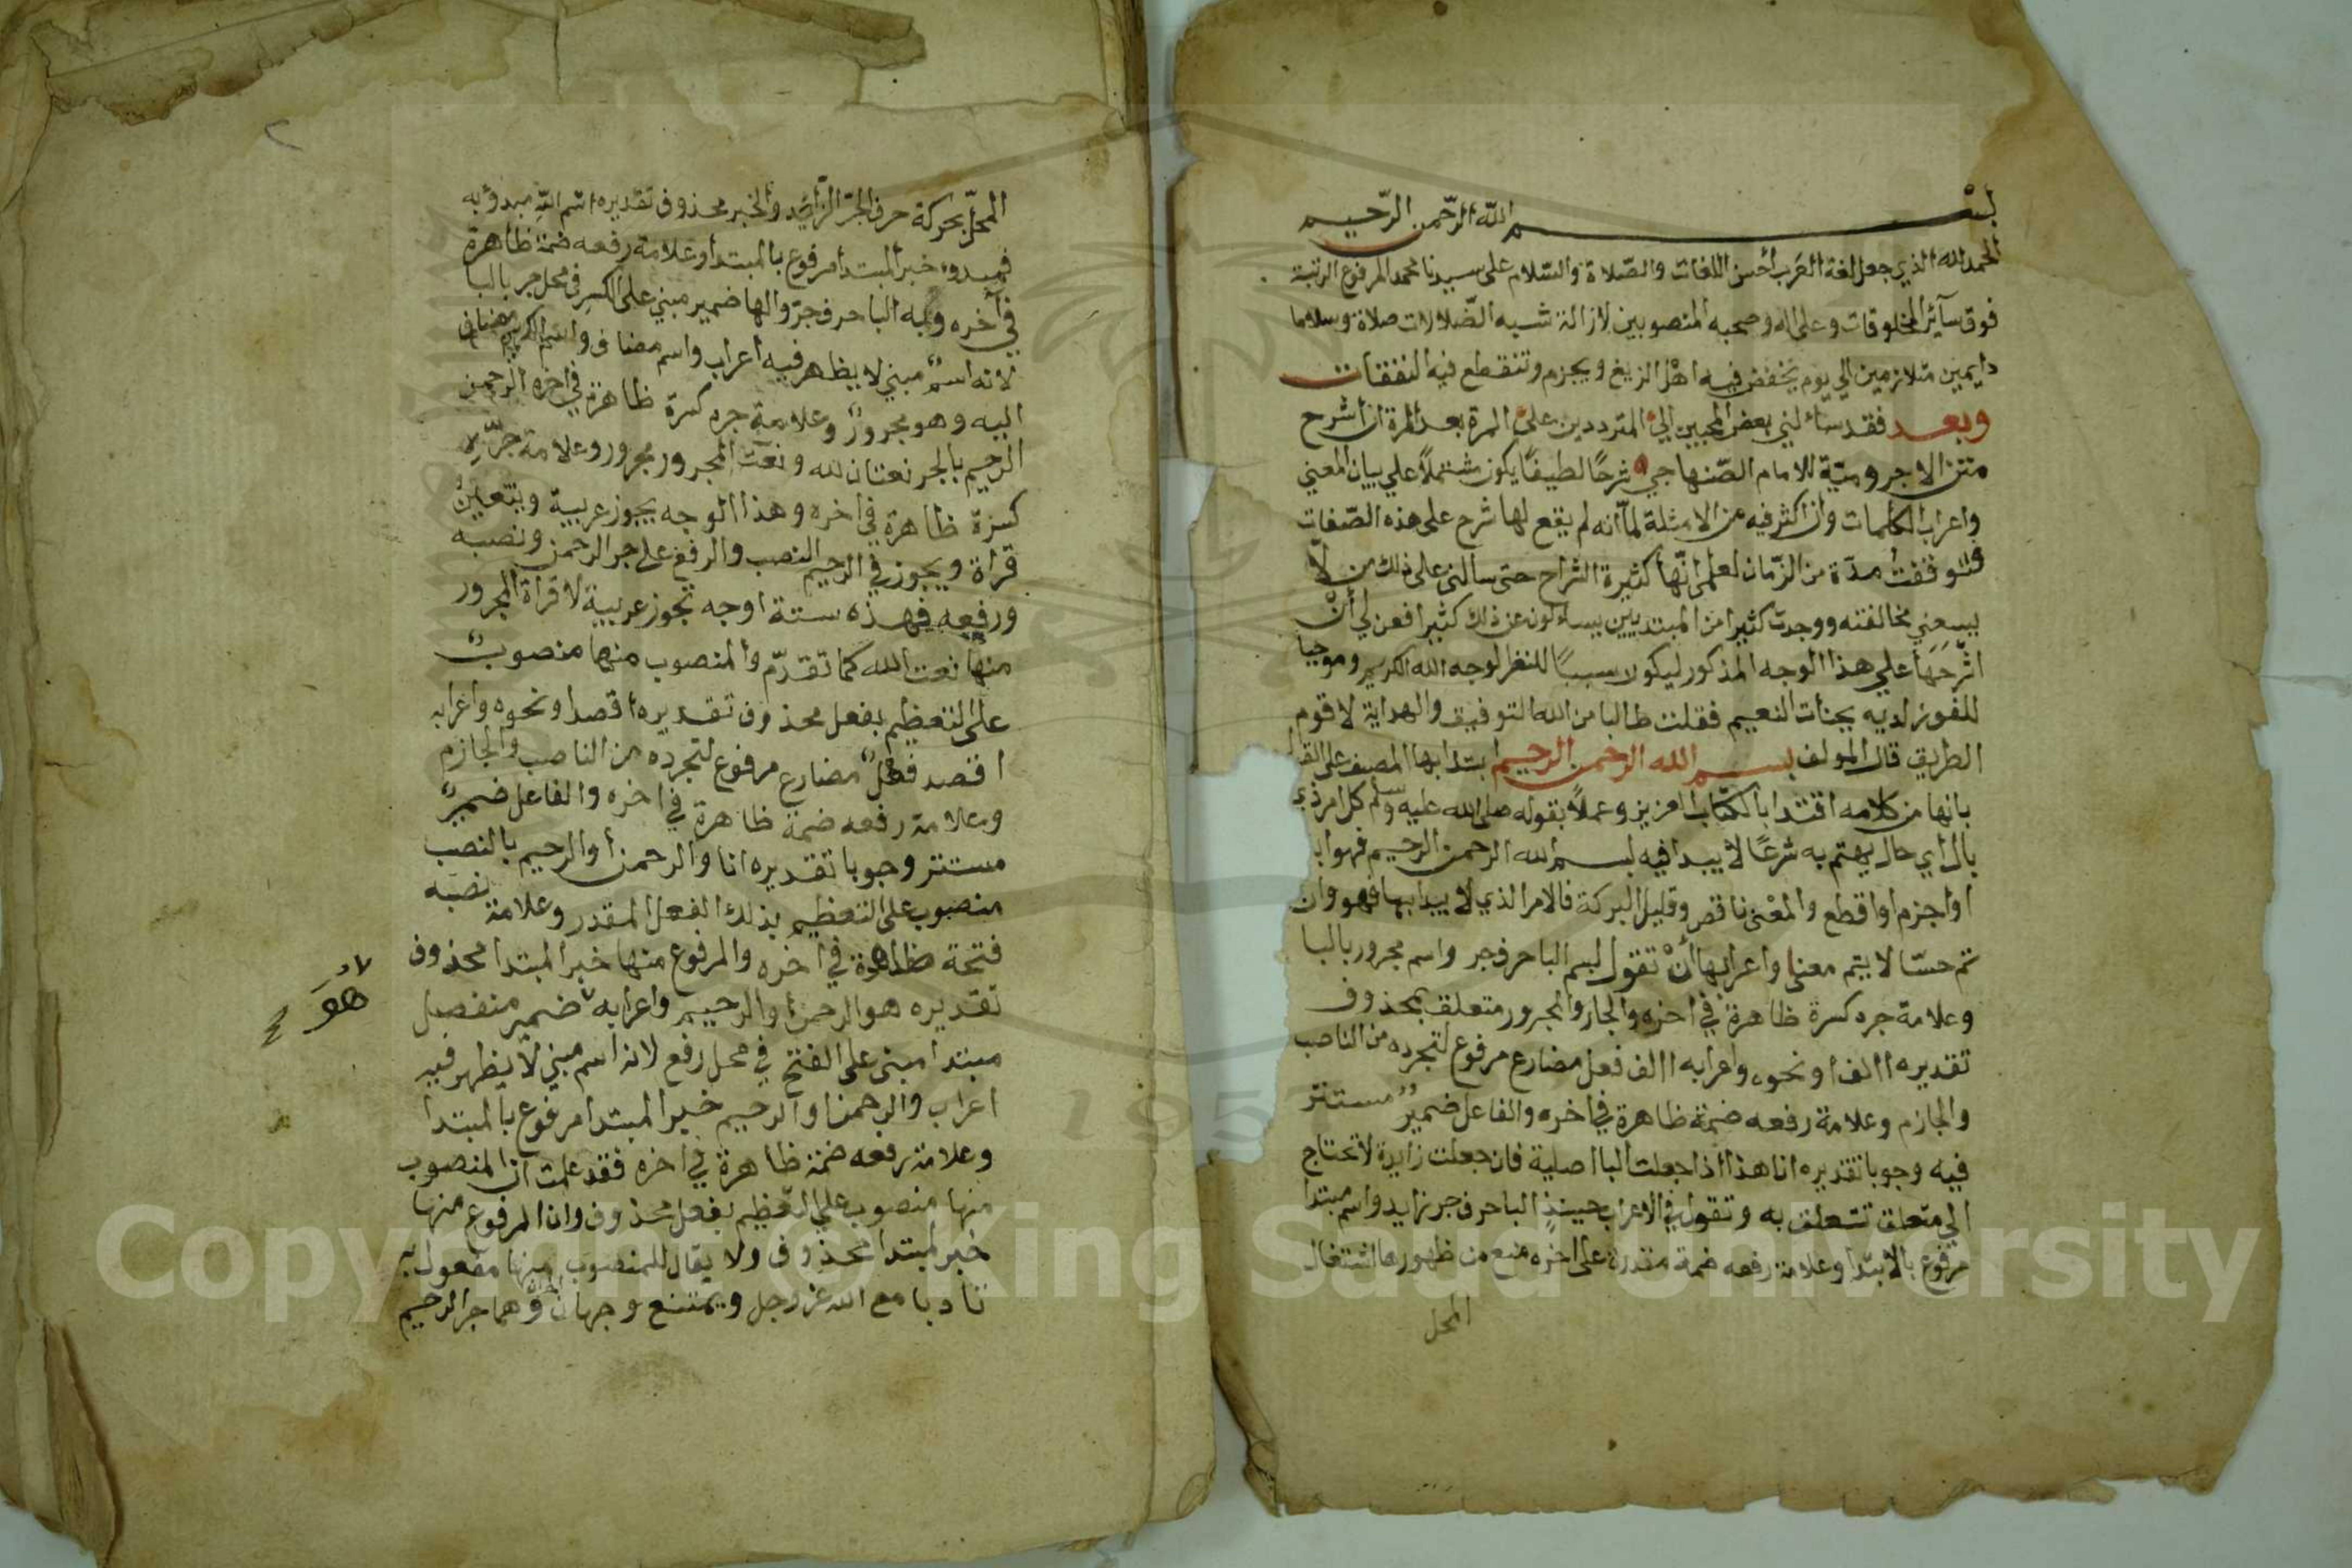 بسم الله الرحمن الرحيم
الحمد لله الذي جعل لغة العرب أحسن اللغات والصلاة والسلام على سيدنا محمد المرفوع الرتبة
فوق سآئر المخلوقات وعلى اله وصحبه المنصوبين لازالة شبه الضلالات صلاة وسلاما
دايمين متلازمين الي يوم يخفض فيه اهل الزيغ ويجزم وتنقطع فيه النفقات
وبعد فقد سألني بعض المحبين الي المترددين على المرة بعد المرة ان اشرح
متن الاجرومية للامام الصنهاجي شرحًا لطيفًا يكون مشتملًا علي بيان المعني
واعراب الكلمات وان اكثر فيه من الامثلة لما انه لم يقع لها شرح على هذه الصفات
فتوقفت مدة من الزمان لعلمي انها كثيرة الشراح حتى سالني على ذلك من لا
يسعني مخالفته ووجدت كثيرا من المبتديين يسالون عن ذلك كثيرا فعن لي أن
اشرحها علي هذا الوجه المذكور ليكون سببًا للنظر لوجه الله الكريم وموجبا
للفوز لديه بجنات النعيم فقلت طالبا من الله التوفيق والهداية لاقوم
الطريق قال المولف بسم الله الرحمن الرحيم ابتدا بها المصنف على القول
بانها من كلامه اقتدا بالكتاب العزيز وعملًا بقوله صلى الله عليه وسلم كل امر ذي
بال اي حال يهتم به شرعًا لا يبدا فيه ببسم الله الرحمن الرحيم فهو ابتر
او اجزم او اقطع والمعنى ناقص وقليل البركة فالامر الذي لا يبدا بها فهو وان
تم حسّا لا يتم معنا واعرابها أن تقول بسم البا حرف جر واسم مجرور بالبا
وعلامة جره كسرة ظاهرة في اخره والجار والمجرور متعلق بمحذوف
تقديره االف او نحوه واعرابه االف فعل مضارع مرفوع لتجرده من الناصب
والجازم وعلامة رفعه ضمة ظاهرة في اخره والفاعل ضمير مستتر
فيه وجوبا تقديره انا هذا اذا جعلت البا اصلية فان جعلت زايدة لا تحتاج
الي متعلق تتعلق به وتقول في الاعراب حينذ البا حرف جر زايد واسم مبتدا
مرفوع بالابتدا وعلامة رفعه ضمة مقدرة على اخره منع من ظهورها اشتغال
المحل
المحل بحركة حرف الجر الزايد والخبر محذوف تقديره اسم الله مبدؤ به
فمبدوء خبر المبتدا مرفوع بالمبتدا وعلامة رفعه ضمة ظاهرة
في آخره وبه البا حرف جر والها ضمير مبني على الكسر في محل جر بالبا
لانه اسم مبني لا يظهر فيه اعراب واسم مضاف واسم الكريم مضاف
اليه وهو مجرور وعلامة جره كسرة ظاهرة في اخره الرحمن
الرحيم بالجر نعتان لله ونعت المجرور مجرور وعلامة جره
كسرة ظاهرة في اخره وهذا الوجه يجوز عربية ويتعين
قراة ويجوز في الرحيم النصب والرفع على جر الرحمن ونصبه
ورفعه فهذه ستة اوجه تجوز عربية لا قراة المجرور
منها نعت الله كما تقدم والمنصوب منها منصوب
على التعظيم بفعل محذوف تقديره اقصد او نحوه واعرابه
اقصد فعل مضارع مرفوع لتجرده من الناصب والجازم
وعلامة رفعه ضمة ظاهرة في اخره والفاعل ضمير
مستتر وجوبا تقديره انا والرحمن أو الرحيم بالنصب
منصوب على التعظيم بذلك الفعل المقدر وعلامة نصبه
فتحة ظاهرة في اخره والمرفوع منها خبر المبتدا محذوف
تقديره هو الرحمن او الرحيم واعرابه ضمير منفصل
هو
مبتدا مبنى على الفتح في محل رفع لانه اسم مبني لا يظهر فيه
اعراب والرحمن او الرحيم خبر المبتدا مرفوع بالمبتدا
وعلامة رفعه ضمة ظاهرة في اخره فقد علمت ان المنصوب
منها منصوب علي التعظيم بفعل محذوف وان المرفوع منها
خبر لمبتدا محذوف ولا يقال للمنصوب منها مفعول به
تادبا مع الله عز وجل ويمتنع وجهان وهما جر الرحيم
Copyright © King Saud University
195